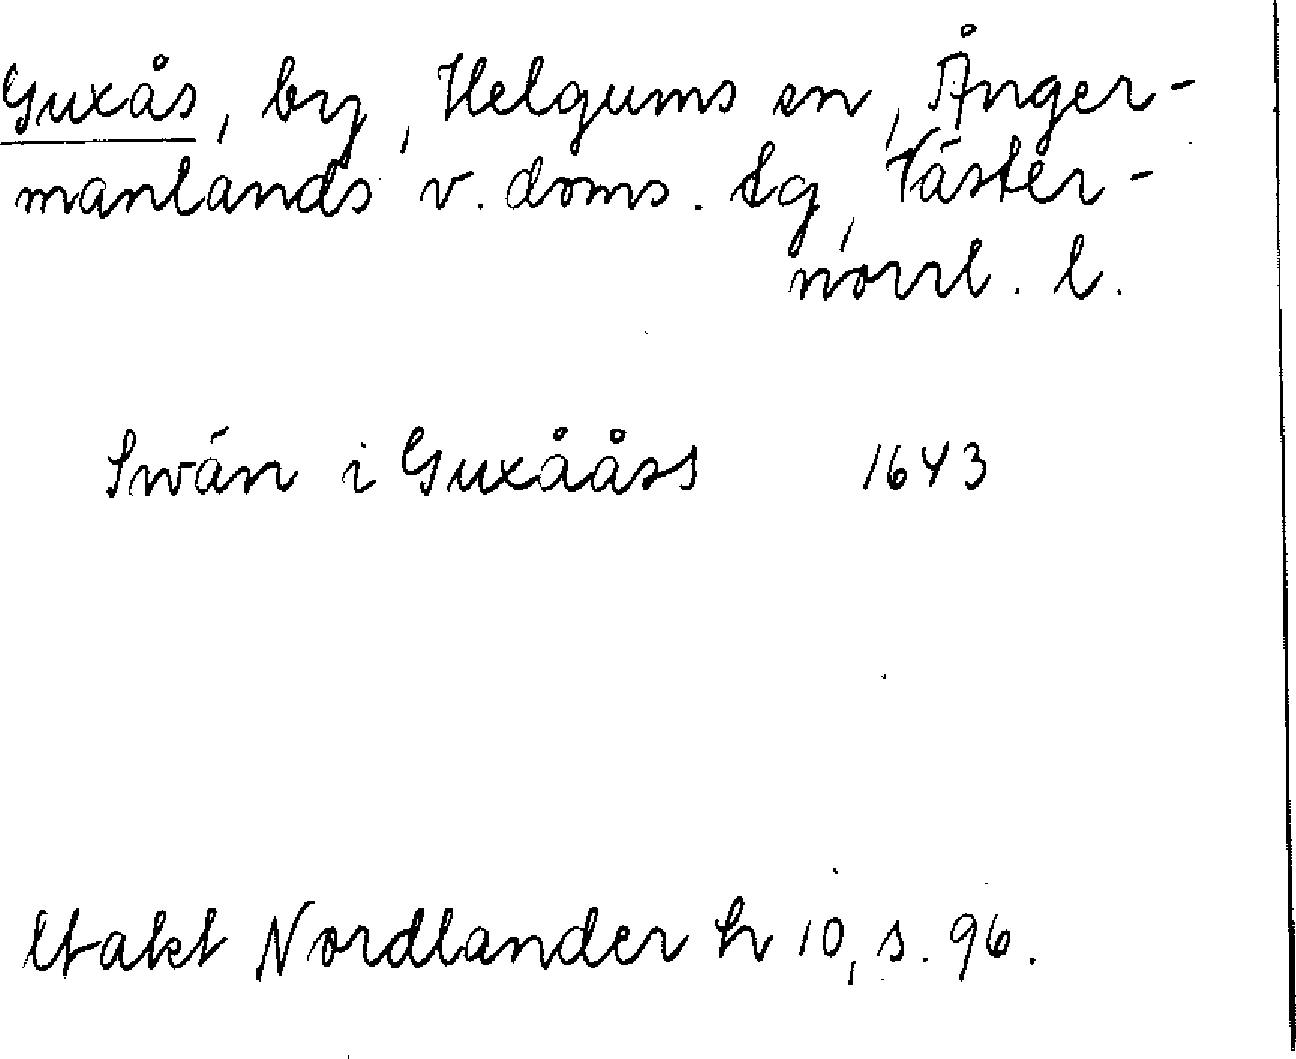 Guxås, by, Helgums sn, Ånger-
manlands v. doms. tg, Väster-
norrl. l.
Swän i Guxååss 1643
Utakt Nordlander h 10, s. 96.